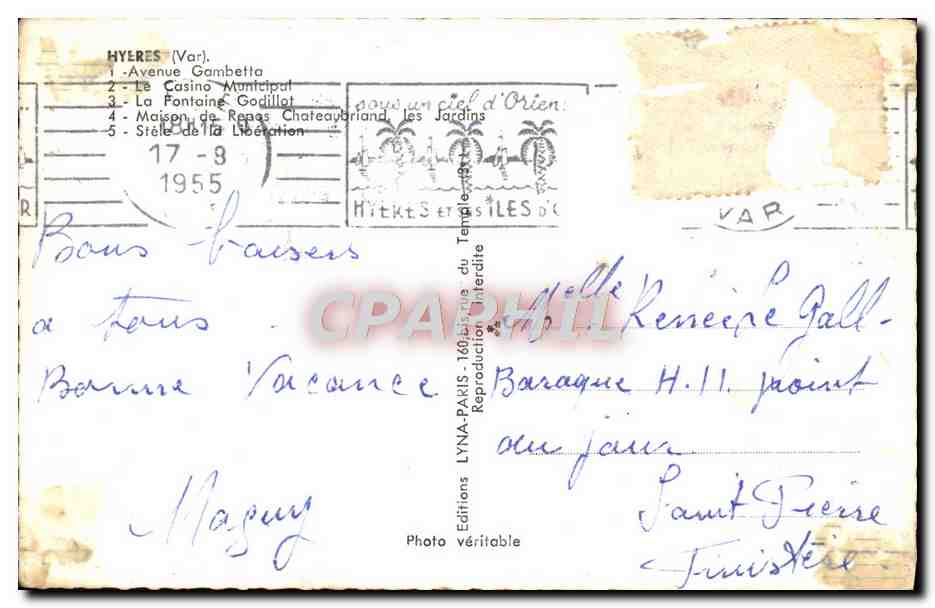 HYERES (Var).
1 - Avenue Gambetta
2 - Le Casino Municipal
3 - La Fontaine Godillot
4 - Maison de Repos Chateaubriand, les Jardins
5 - Stèle de la Libération
17 -8
1955
sous un ciel d'Orien
HYERES ET SES ILES D'
VAR
Bons baisers
a tous
Bonne Vacance
Maguy
Editions LYNA-PARIS - 160 bis, rue du Temple
Reproduction interdite
Photo véritable
CPARPHIL
Melle Le Gall-
Baraque H.11. point
du jour
Saint Pierre
Finistère